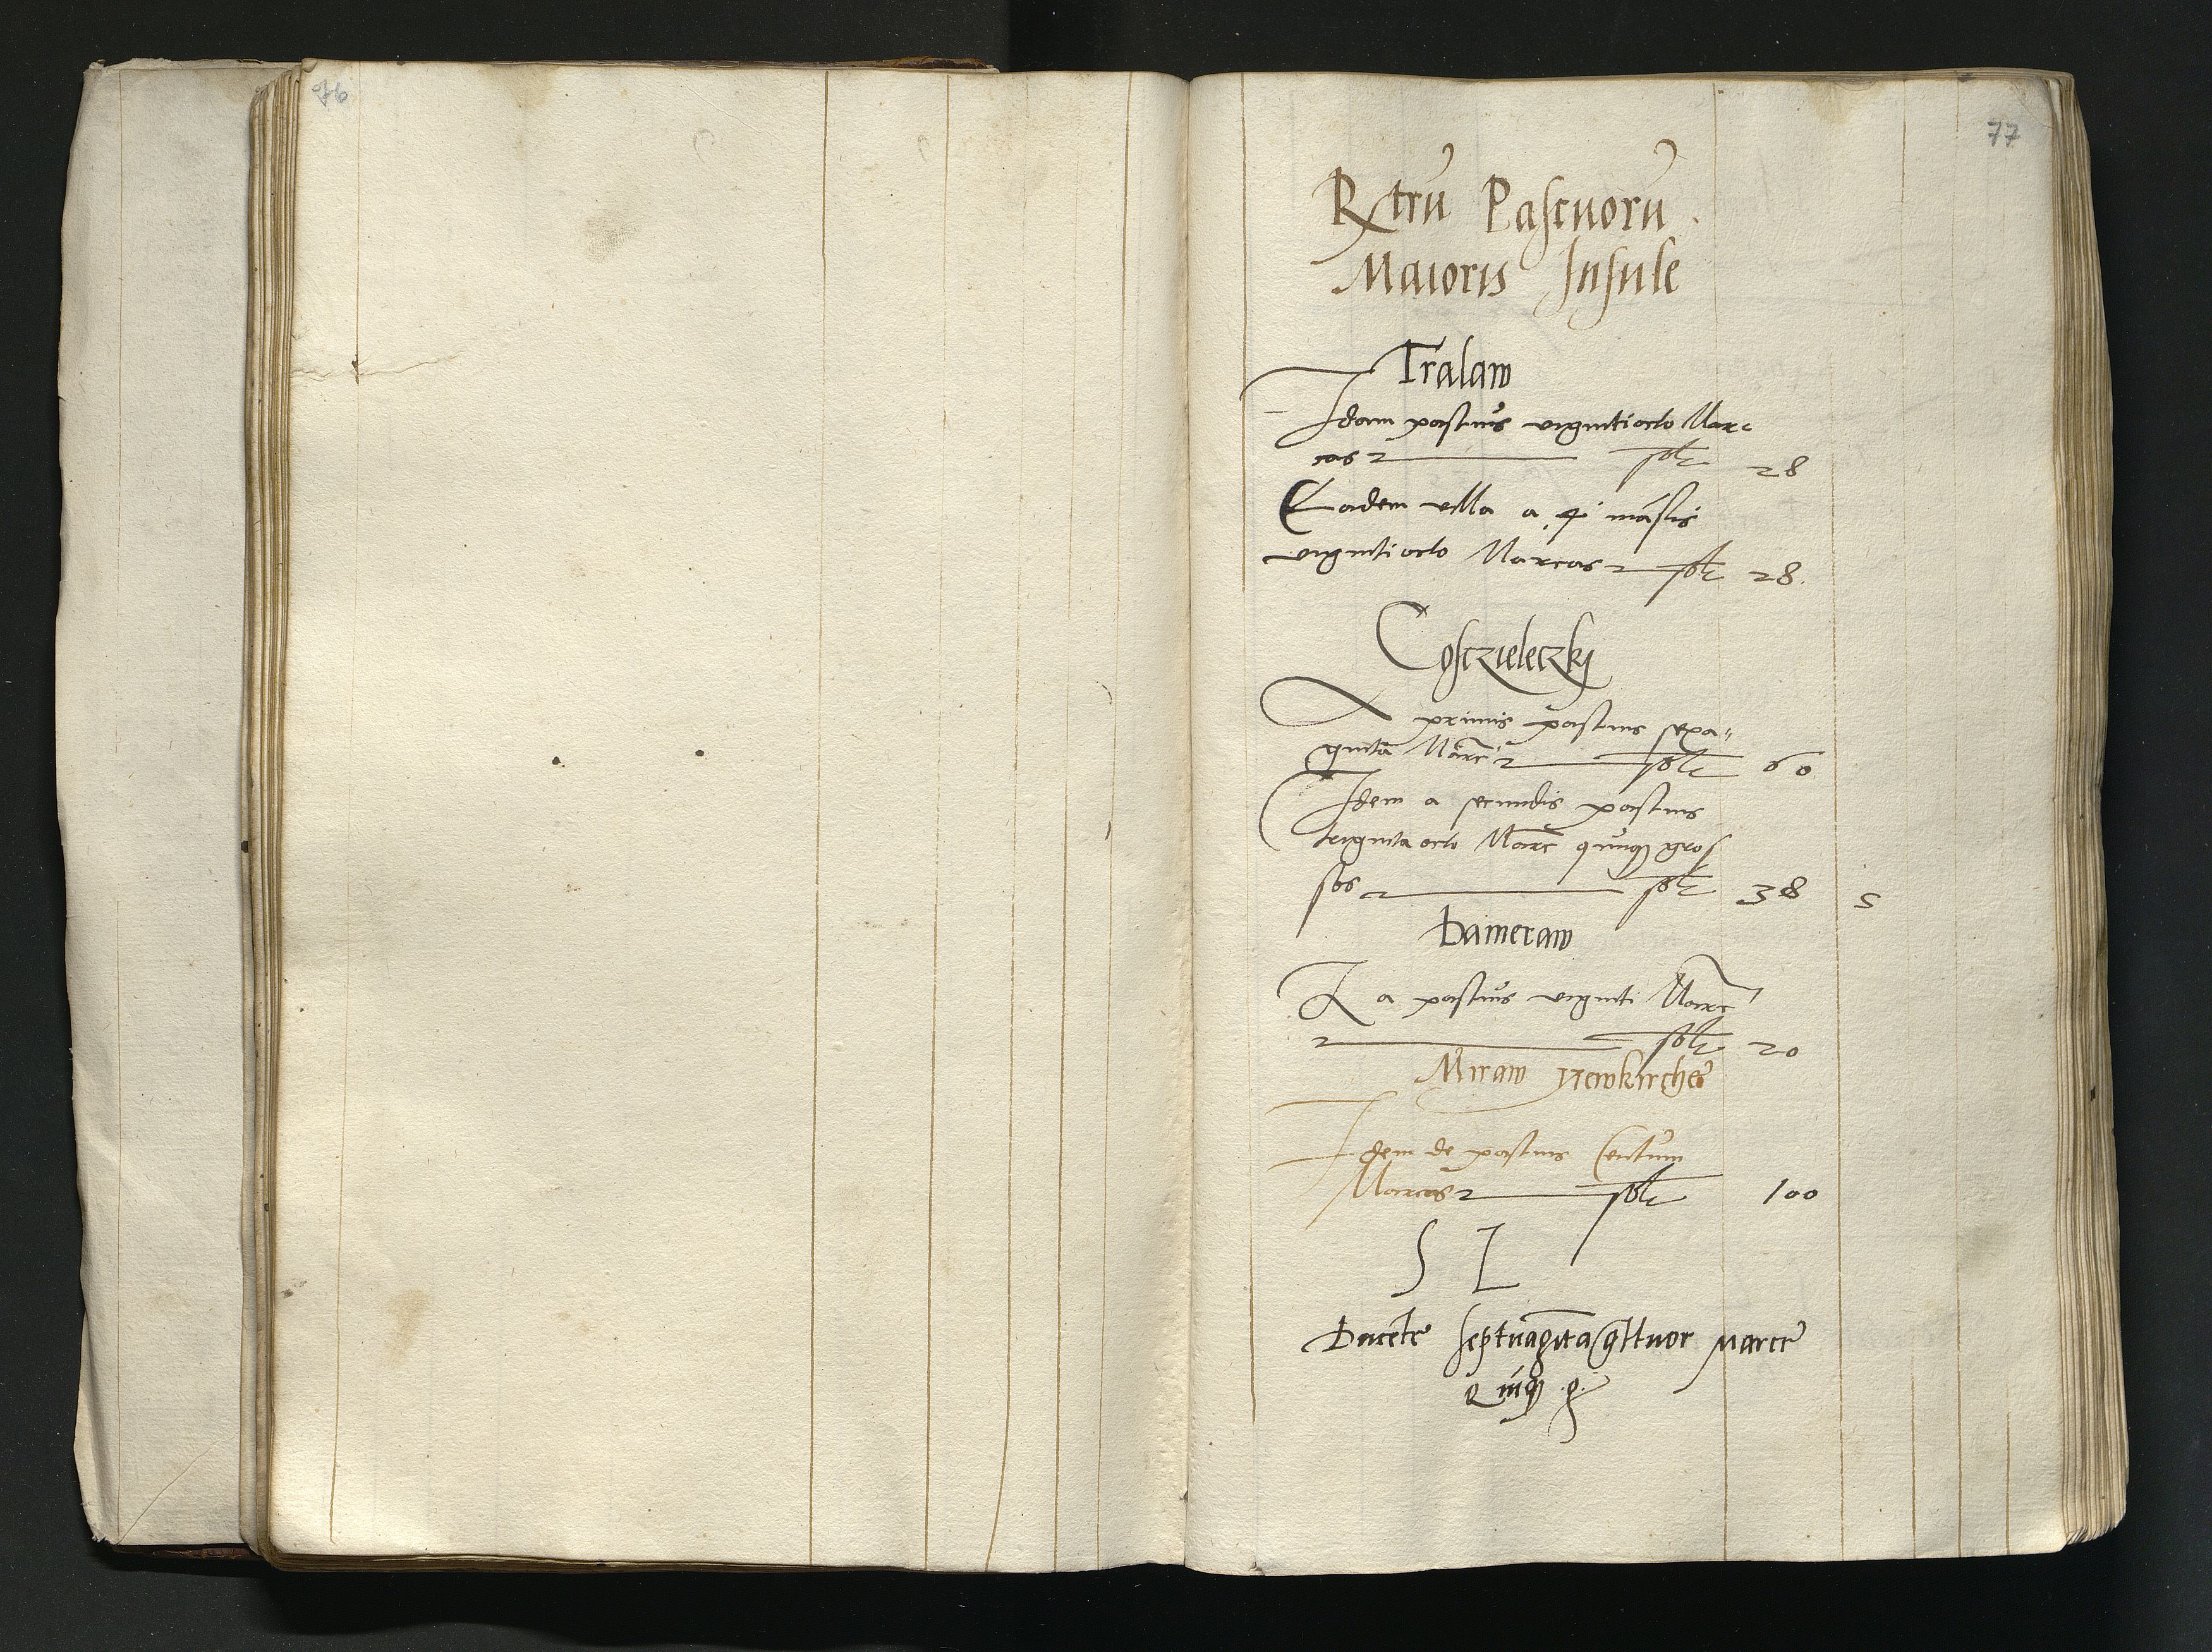 76
77
Rtrũ Pascuorũ
Maioris Insule
Tralaw
Idem pascuis vigintiocto Mar
cas solt 28
Eadem villa a 4 mansis
vigintiocto Marcas solt 28
Cosczieleczki
A primis pascuis sexa
ginta Marc solt 60
Idem a secundis pascuis
triginta octo Marc quinq gros
sos solt 38 5
Dameraw
A pascuis viginti Marc
solt 20
Miraw Newkirche
Idem de pascuis Centum
Marcas solt 100
S L
Ducente septuaginta qttuor marce
Quinq g